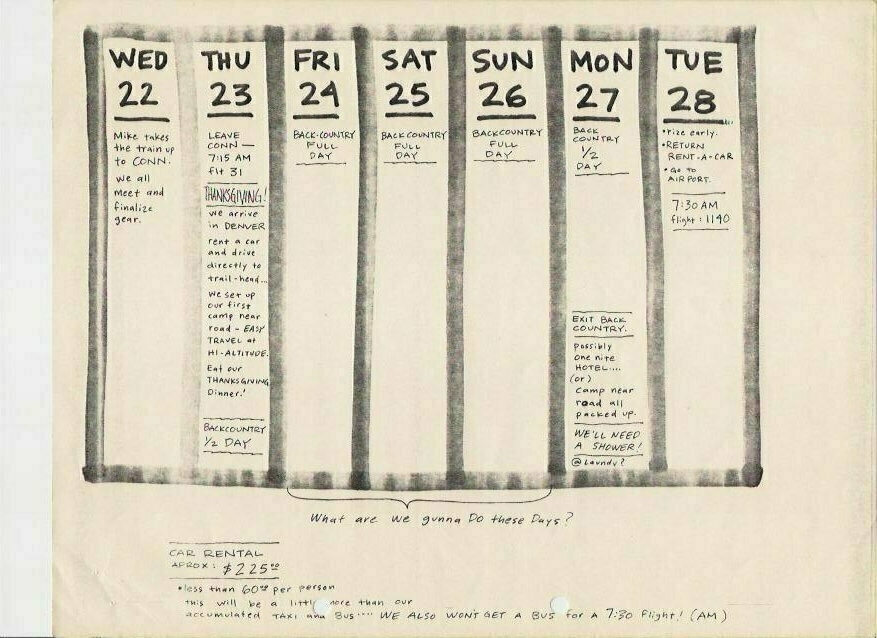 WED
22
Mike takes
the train up
to CONN.
we all
meet and
finalize
gear.
THU
23
LEAVE
CONN —
7:15 AM
flt 31
THANKSGIVING!
we arrive
in DENVER
rent a car
and drive
directly to
trail-head...
We set up
our first
camp near
road - EASY
TRAVEL at
HI-ALTITUDE.
Eat our
THANKSGIVING
Dinner!
BACKCOUNTRY
1/2 DAY
FRI
24
BACK-COUNTRY
FULL
DAY
SAT
25
BACKCOUNTRY
FULL
DAY
SUN
26
BACKCOUNTRY
FULL
DAY
MON
27
BACK
COUNTRY
1/2
DAY
EXIT BACK
COUNTRY.
possibly
one nite
HOTEL....
(or)
camp near
road all
packed up.
WE'LL NEED
A SHOWER!
@ Laundy?
TUE
28
• rize early.
• RETURN
RENT-A-CAR
• Go to
AIRPORT.
7:30 AM
flight: 1140
What are we gunna Do these Days?
CAR RENTAL
APROX: $225.00
• less than 60.00 per person
this will be a little more than our
accumulated TAXI and Bus.... WE ALSO WON'T GET A BUS for A 7:30 Flight! (AM)